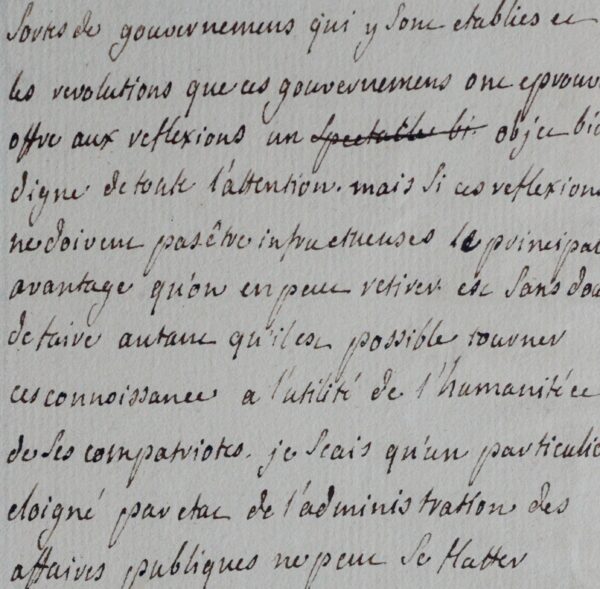 sortes de gouvernemens qui y sont etablies et
les revolutions que ces gouvernemens ont eprouv
offre aux reflexions un spectable bi. objet bie
digne de toute l'attention. mais si ces reflexions
ne doivent pas être infructueuses le principal
avantage qu'on en peut retirer est sans dou
de faire autant qu'il est possible tourner
ces connoissance a l'utilité de l'humanité et
de ses compatriotes. je scais qu'un particulie
eloigné par etat de l'administration des
affaires publiques ne peut se flatter